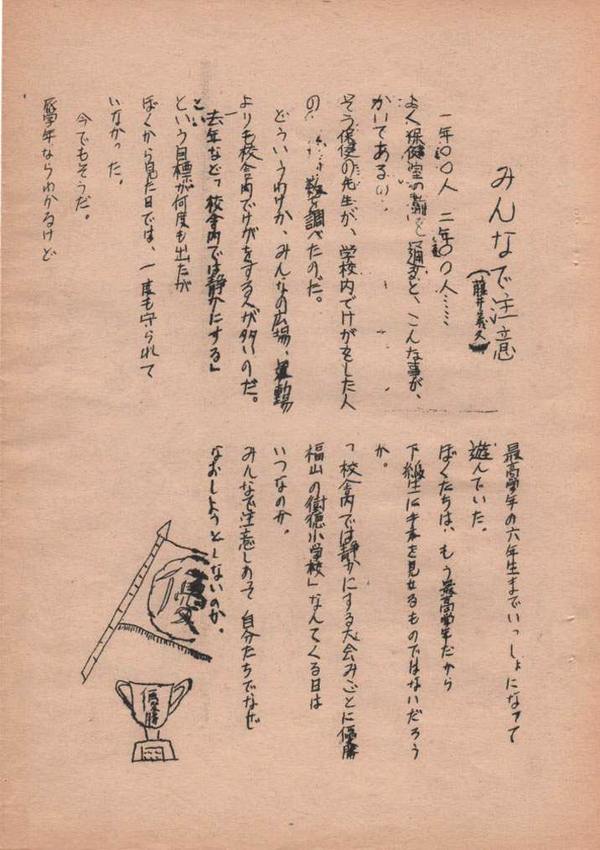 みんなで注意
(藤井義久)
一年〇〇人 二年〇〇人……
よく保健室の前を通ると、こんな事が、
かいてある。
そう保健の先生が、学校内でけがをした人
の 数を調べたのだ。
どういうわけか、みんなの広場、運動場
よりも校舎内でけがをする人が多いのだ。
去年など「校舎内では静かにする」
という目標が何度も出たが
ぼくから見た目では、一度も守られて
いなかった。
今でもそうだ。
低学年ならわかるけど
最高学年の六年生までいっしょになって
遊んでいた。
ぼくたちは、もう最高学年だから
下級生に手本を見せるものではないだろう
か。
「校舎内では静かにする大会みごとに優勝
福山の樹徳小学校」なんてくる日は
いつなのか。
みんなで注意しあって自分たちでなぜ
なおしようとしないのか。
優
優勝